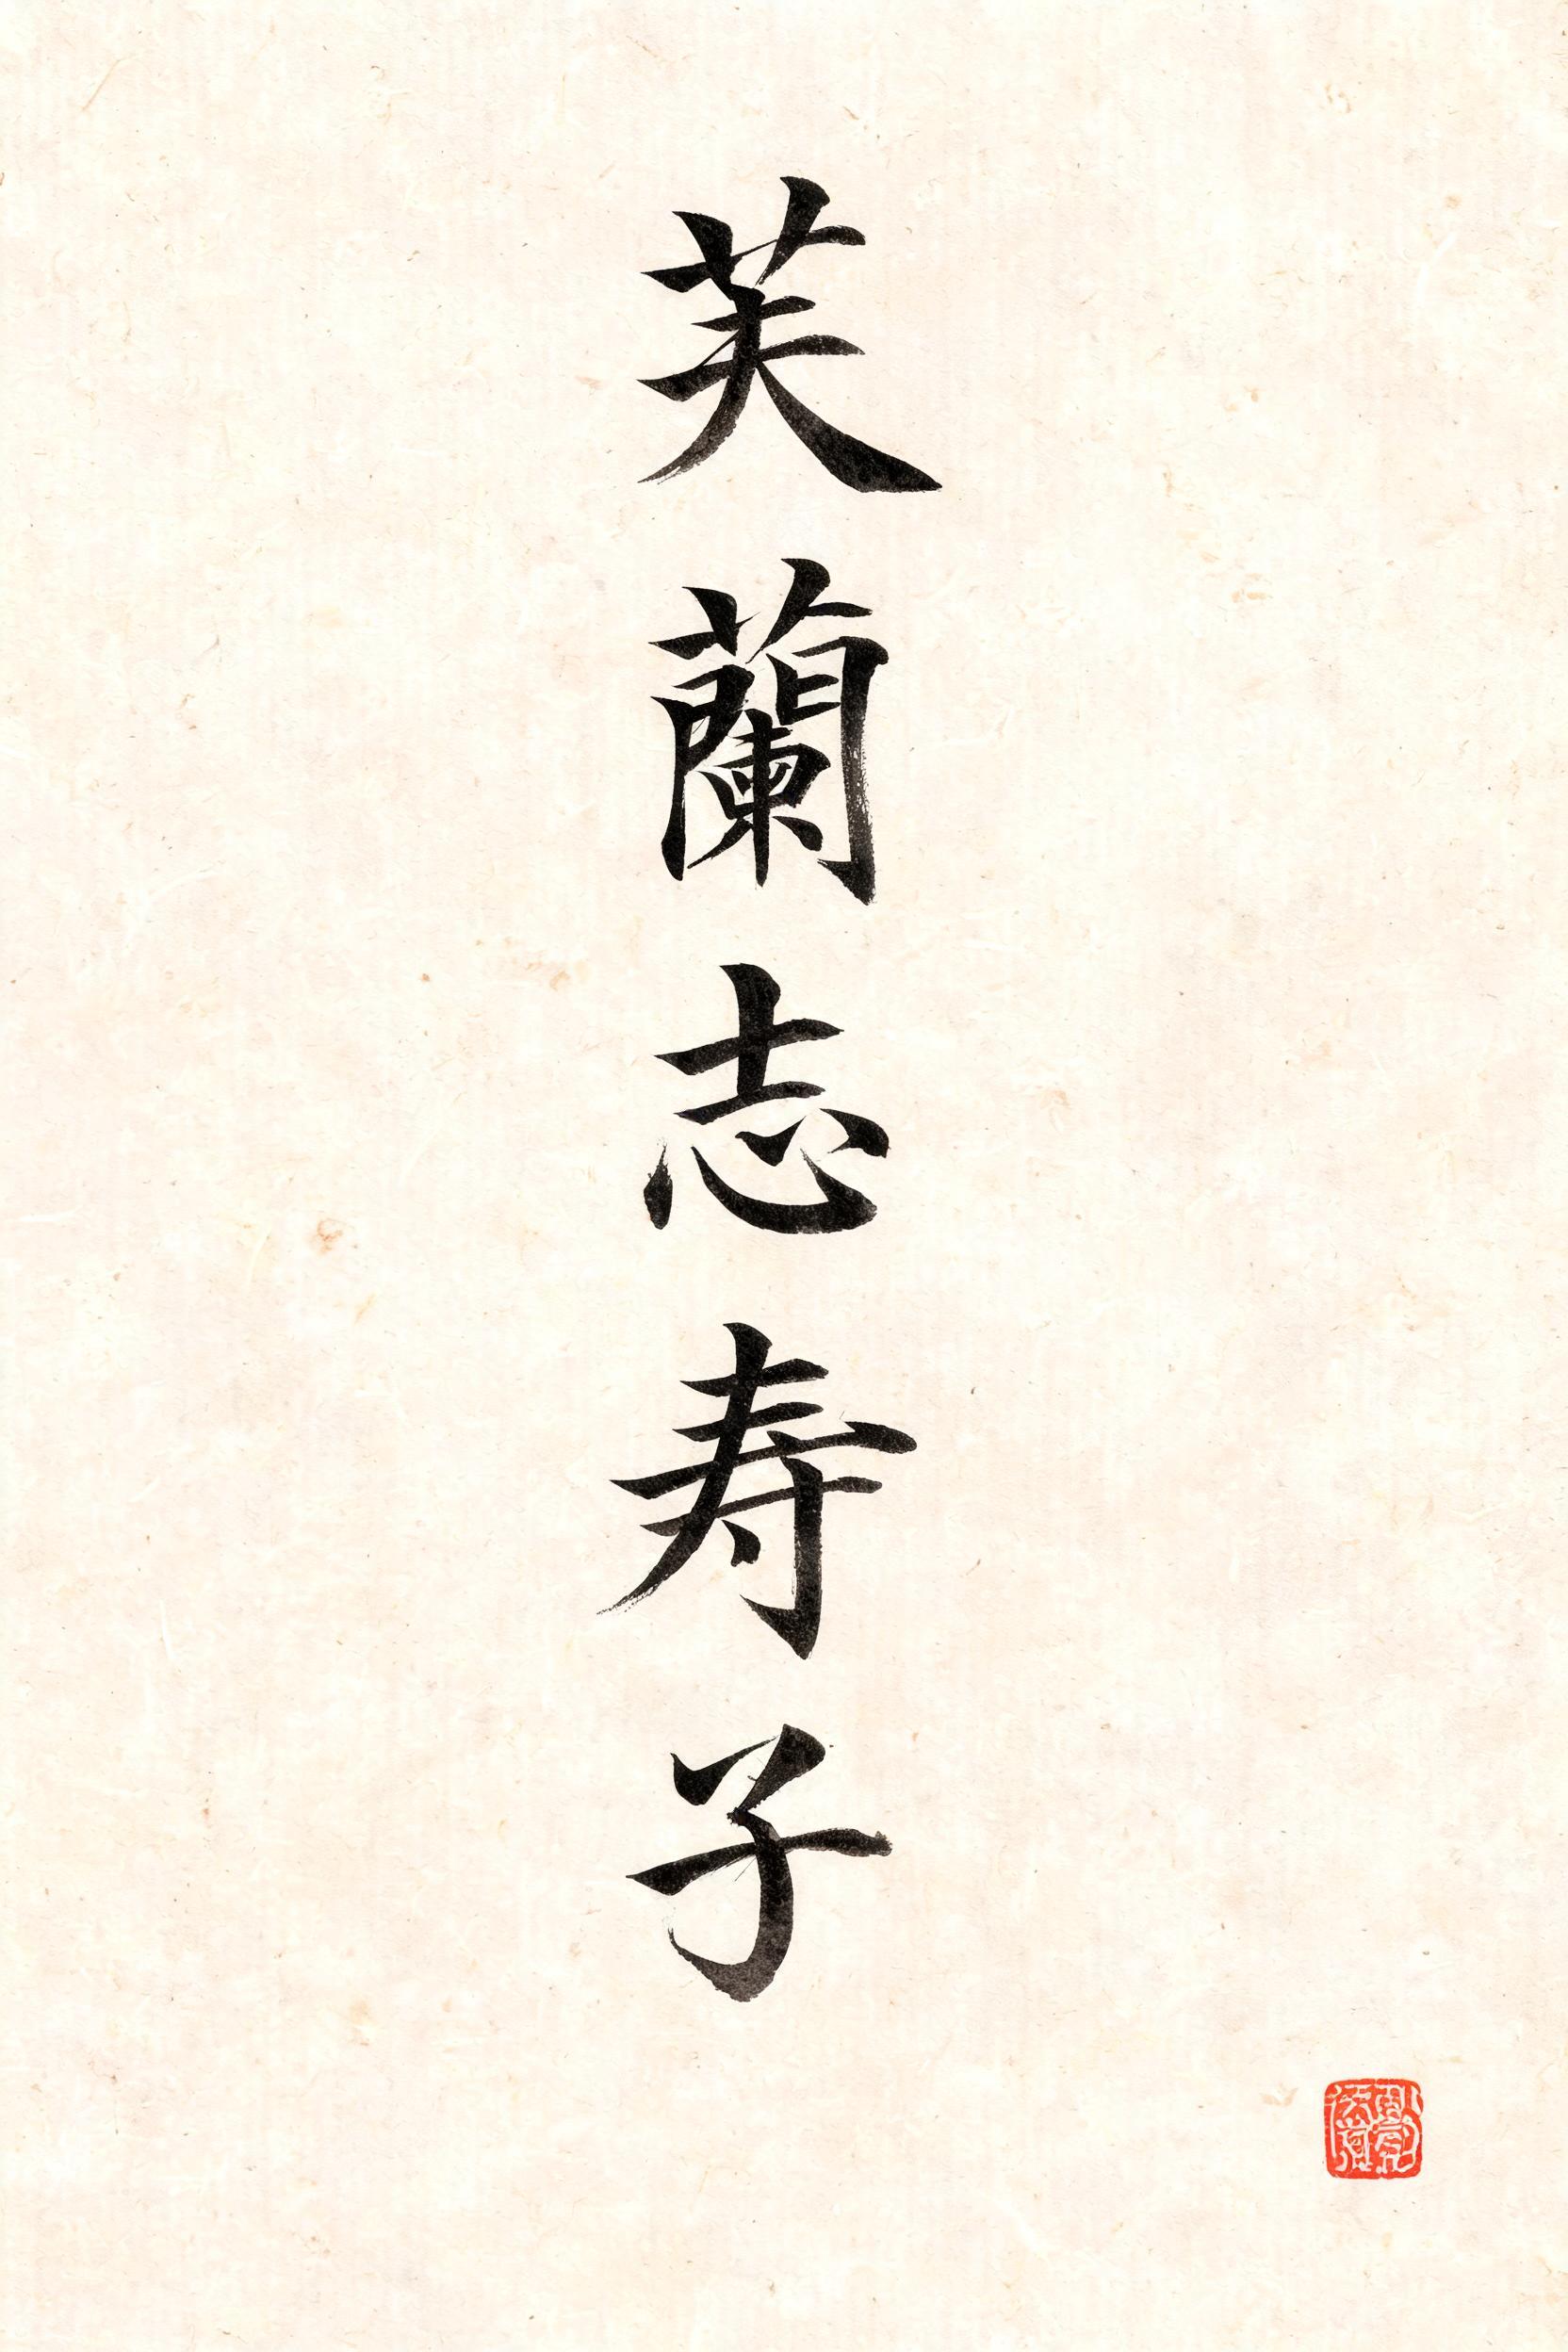 芙蘭志寿子